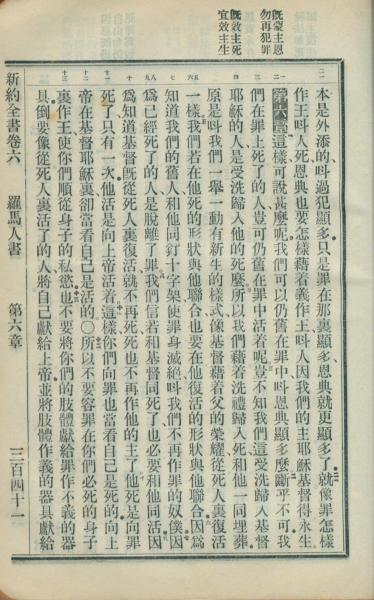 既蒙主恩
勿再犯罪
既效主死
宜效主生
本是外添的呌過犯顯多只是罪在那裏顯多恩典就更顯多了就像罪怎樣
作王呌人死恩典也要怎樣藉着義作王呌人因我們的主耶穌基督得永生
第六章這樣可說甚麼呢我們可以仍舊在罪中呌恩典顯多麼斷乎不可我
們在罪上死了的人豈可仍舊在罪中活着呢豈不知我們這受洗歸入基督
耶穌的人是受洗歸入他的死麼所以我們藉着洗禮歸入死和他一同埋葬
原是呌我們一舉一動有新生的樣式像基督藉着父的榮耀從死人裏復活
一樣我們若在他死的形狀與他聯合也要在他復活的形狀與他聯合因爲
知道我們的舊人和他同釘十字架使罪身滅絕呌我們不再作罪的奴僕因
爲已經死了的人是脫離了罪我們信若和基督同死了也必要和他同活因
爲知道基督旣從死人裏復活就不再死死也不再作他的主了他死是向罪
死了只有一次他活是向上帝活着這樣你們向罪也當看自己是死的向上
帝在基督耶穌裏卻當看自己是活的〇所以不要容罪在你們必死的身子
裏作王使你們順從身子的私慾也不要將你們的肢體獻給罪作不義的器
具倒要像從死人裏活了的人將自己獻給上帝並將肢體作義的器具獻給
新約全書卷六 羅馬人書 第六章 三百四十一